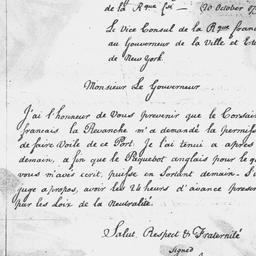 de la Rque fçe — (20 October 9
Le Vice Consul de la Rque fran
au Gouverneur de la Ville et Et
de New York.
Monsieur Le Gouverneur
J'ai l'honneur de Vous prevenir que le Corsair
francais la Revanche m'a demandé la permiss
de faire Voile de ce Port. Je l'ai tenu a après
demain, a fin que le Paquebot anglais pour le qu
vous m'avés ecrit, puisse en sortant demain. S'il
juge apropos, avoir les 24 heurs d'avance prescr
par les Loix de la Neutralité.
Salut, Respect & Fraternité
signed